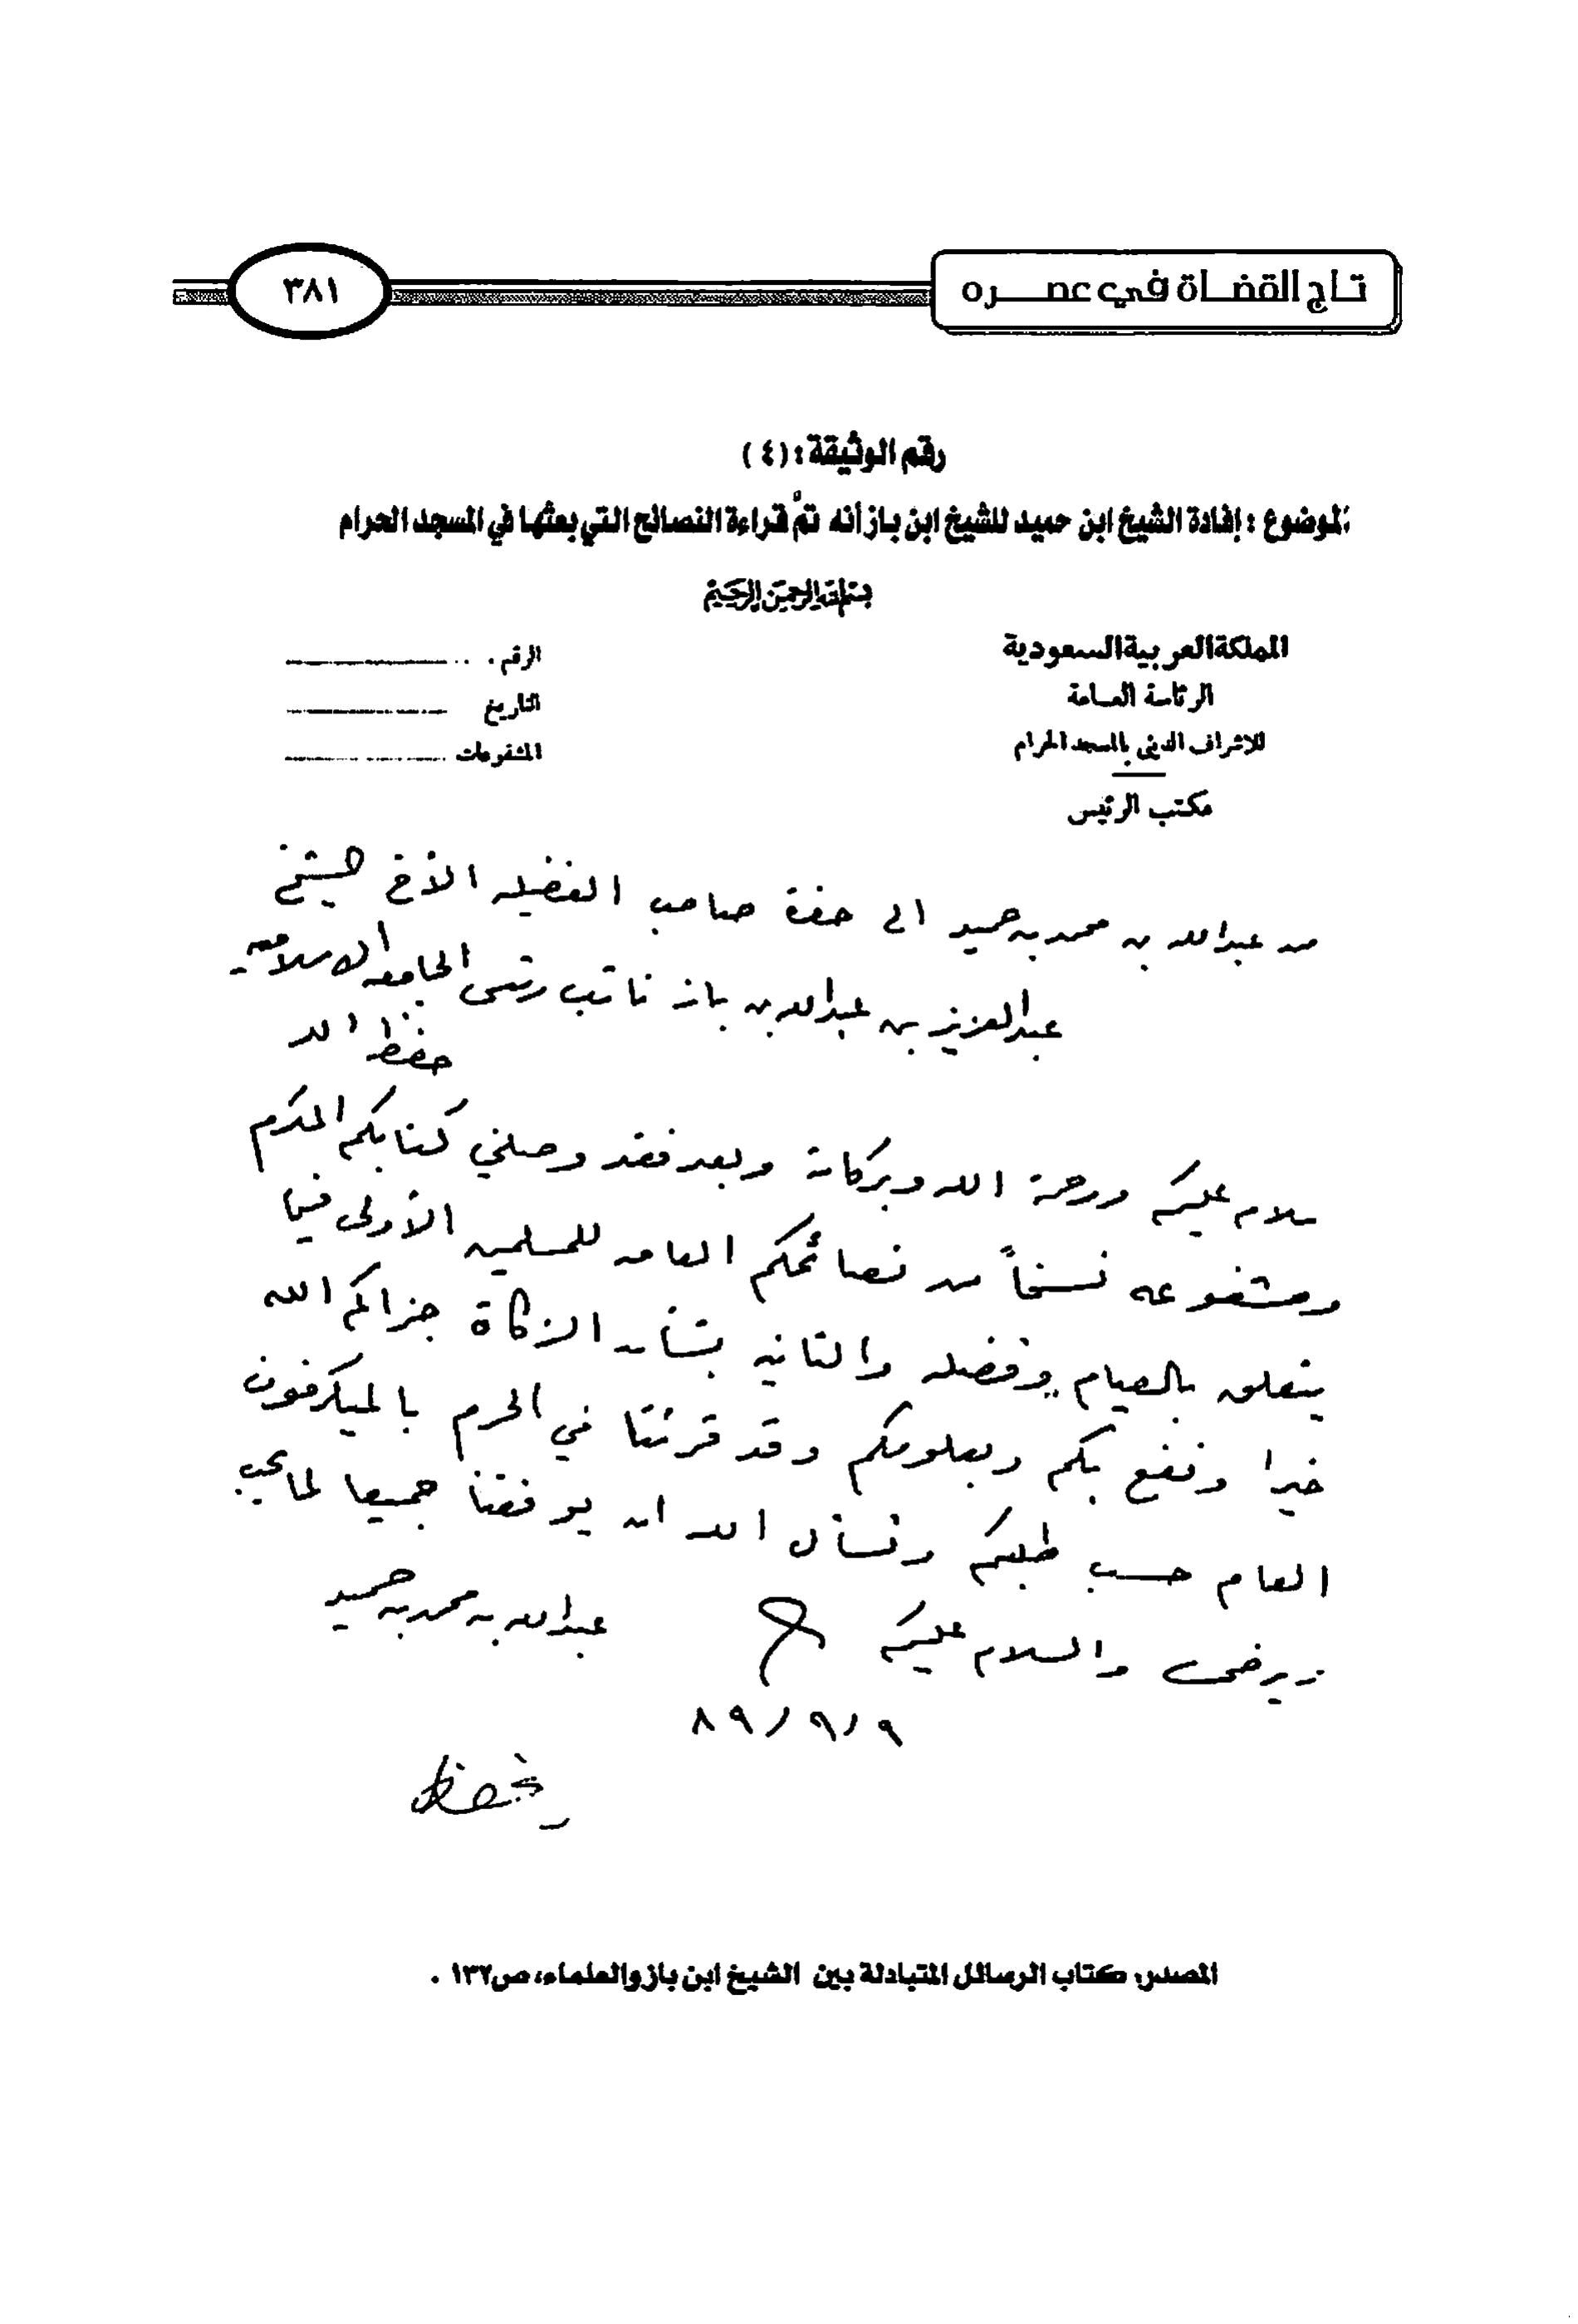 تاج القضاة في عصره
٣٨١
رقم الوثيقة : (٤)
الموضوع : إفادة الشيخ ابن حميد للشيخ ابن باز أنه تمَّ قراءة النصائح التي بعثها في المسجد الحرام
بسم الله الرحمن الرحيم
المملكة العربية السعودية
الرئاسة العامة
للاشراف الديني بالمسجد الحرام
مكتب الرئيس
الرقم
التاريخ
المشفوعات
من عبدالله بن محمد بن حميد الى حضرة صاحب الفضيله الأخ الشيخ
عبدالعزيز بن عبدالله بن باز نائب رئيس الجامعه الاسلاميه
حفظه الله
سلام عليكم ورحمة الله وبركاته وبعد فقد وصلني كتابكم المكرم
ومشفوعه نسخاً من نصائحكم العامه للمسلمين الأولى فيما
يتعلق بالصيام وفضله والثانيه بشأن الزكاة جزاكم الله
خيرا ونفع بكم وبعلومكم وقد قرئتا في الحرم بالميكرفون
العام حسب طلبكم ونسأل الله ان يوفقنا جميعا لما يحب
ويرضى والسلام عليكم
عبدالله بن محمد بن حميد
٨٩/٩/٩
يحفظ
المصدر: كتاب الرسائل المتبادلة بين الشيخ ابن باز والعلماء، ص١٣٢ .